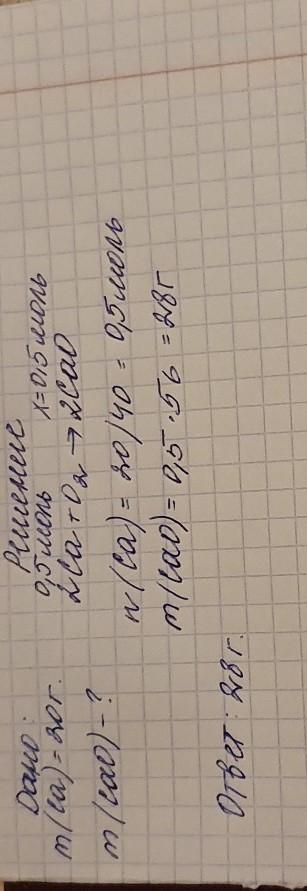 Дано:
m(Ca) = 20г.
m(CaO) - ?
Решение
0,5моль x=0,5моль
2Ca + O2 → 2CaO
n(Ca) = 20/40 = 0,5моль
m(CaO) = 0,5 · 56 = 28г
Ответ: 28г.